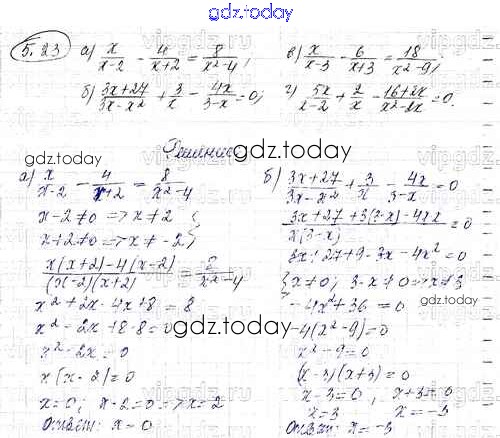 gdz.today
5.23 а) x/(x-2) - 4/(x+2) = 8/(x²-4);
в) x/(x-3) - 6/(x+3) = 18/(x²-9);
б) (3x+27)/(3x-x²) + 3/x - 4x/(3-x) = 0;
г) 5x/(x-2) + 2/x - (16+2x)/(x²-2x) = 0.
Решение
gdz.today
gdz.today
а) x/(x-2) - 4/(x+2) = 8/(x²-4)
x-2≠0 => x≠2
x+2≠0 => x≠-2
(x(x+2)-4(x-2))/((x-2)(x+2)) = 8/(x²-4)
x²+2x-4x+8 = 8
x²-2x+8-8=0
gdz.today
x²-2x=0
x(x-2)=0
x=0; x-2=0=>x=2
Ответ: x=0
б) (3x+27)/(3x-x²) + 3/x - 4x/(3-x) = 0
(3x+27+3(3-x)-4x·x)/(x(3-x)) = 0
3x+27+9-3x-4x²=0
x≠0; 3-x≠0=>x≠3
gdz.today
-4x²+36=0
-4(x²-9)=0
x²-9=0
(x-3)(x+3)=0
x-3=0, x+3=0
x=3 x=-3
Ответ: x=-3